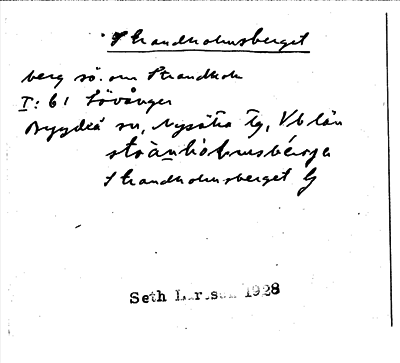 Strandholmsberget
berg sö. om Strandholm
I: 61 Lövånger
Bygdeå sn, Nysätra tg, Vb län
Strandholmsberget G
Seth Larsson 1928